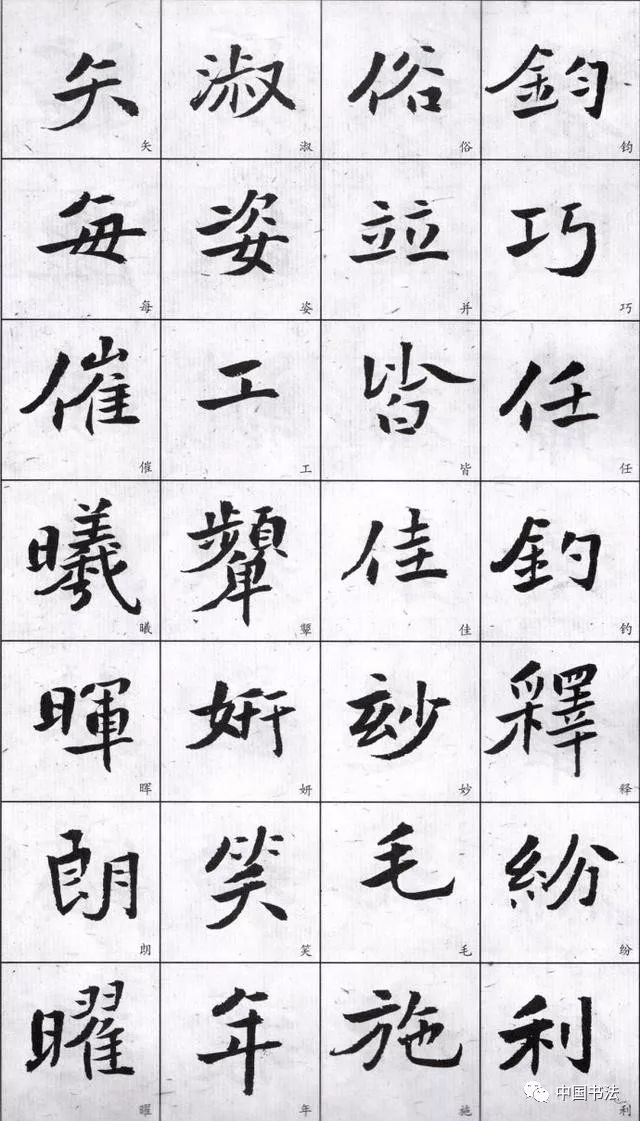 鈞巧任釣釋紛利
钧巧任钓释纷利
俗並皆佳玅毛施
俗并皆佳妙毛施
淑姿工顰妍笑年
淑姿工颦妍笑年
矢每催曦暉朗曜
矢每催曦晖朗曜
中国书法